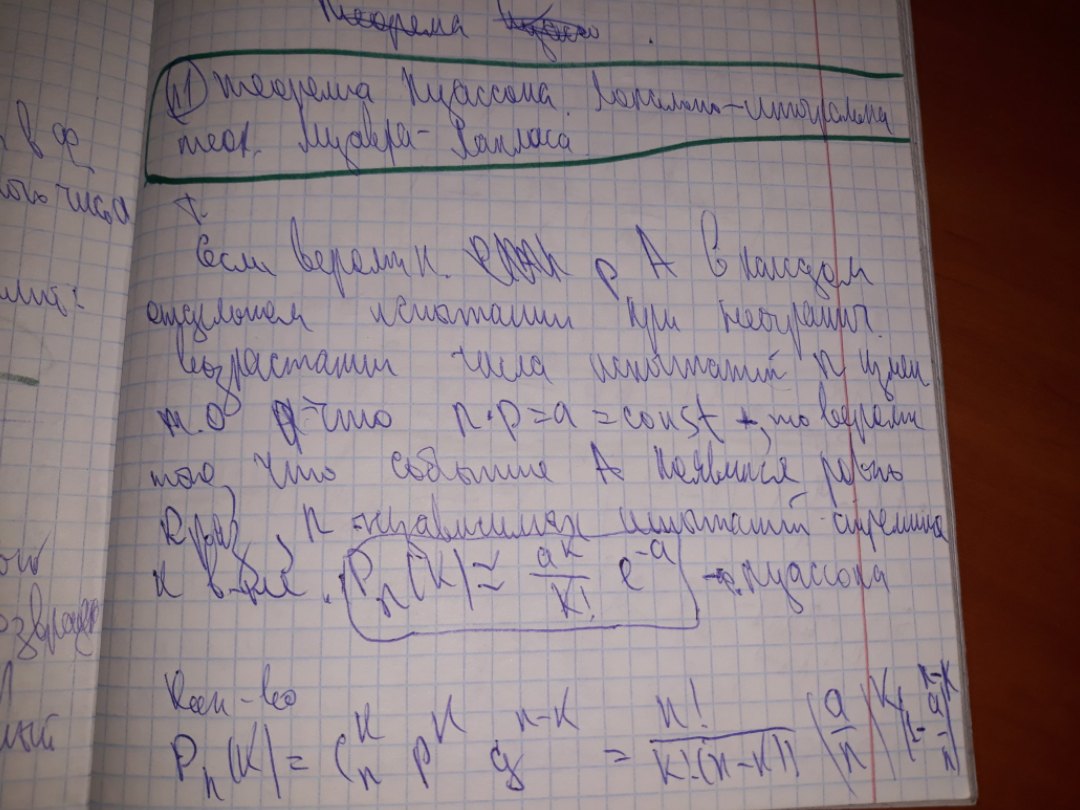 Теорема
п1 Теорема Пуассона. Локально-интегральна
теор. Муавра-Лапласа
Т
Если вероятн. p A в каждом
отдельном испытании при неогранич.
возрастании числа испытаний n измен
т.о что n·p=a=const, то вероятн
того, что событие A появится ровно
k раз, n независимых испытаний стремится
к в-не. Pn(k) ≃ a^k/k! e^-a - ф. Пуассона
Док-во
Pn(k) = C_n^k p^k q^n-k = n!/k!(n-k)! (a/n)^k (1-a/n)^n-k
в ф
ного числа
ный